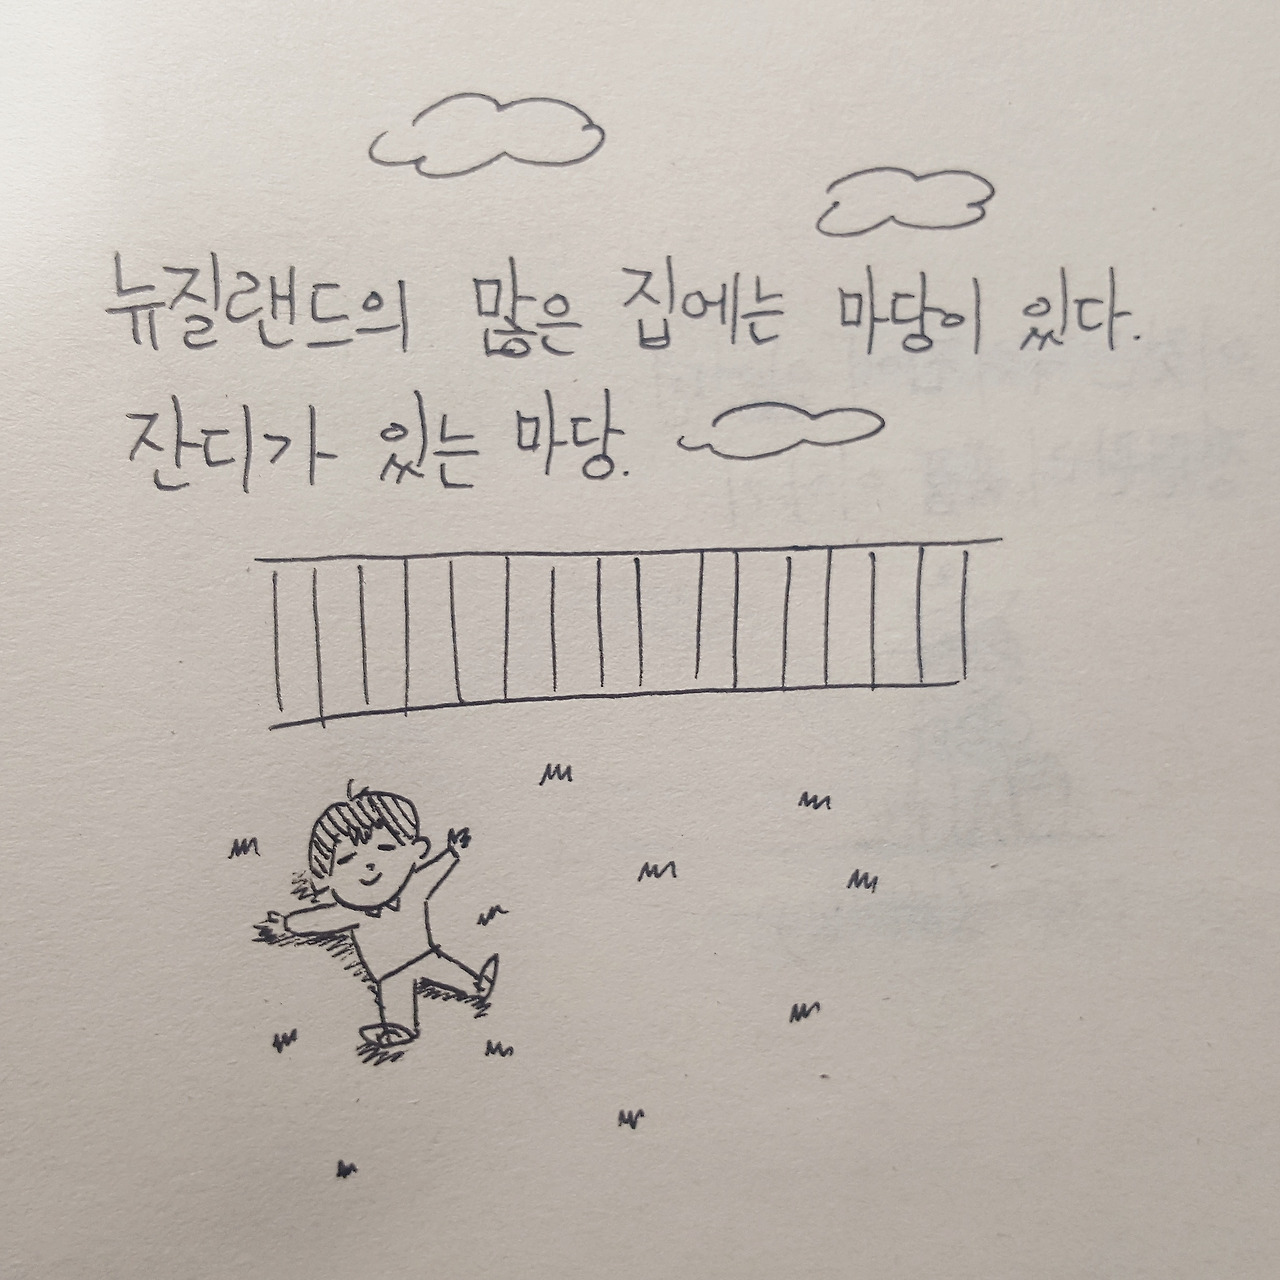 뉴질랜드의 많은 집에는 마당이 있다.
잔디가 있는 마당.